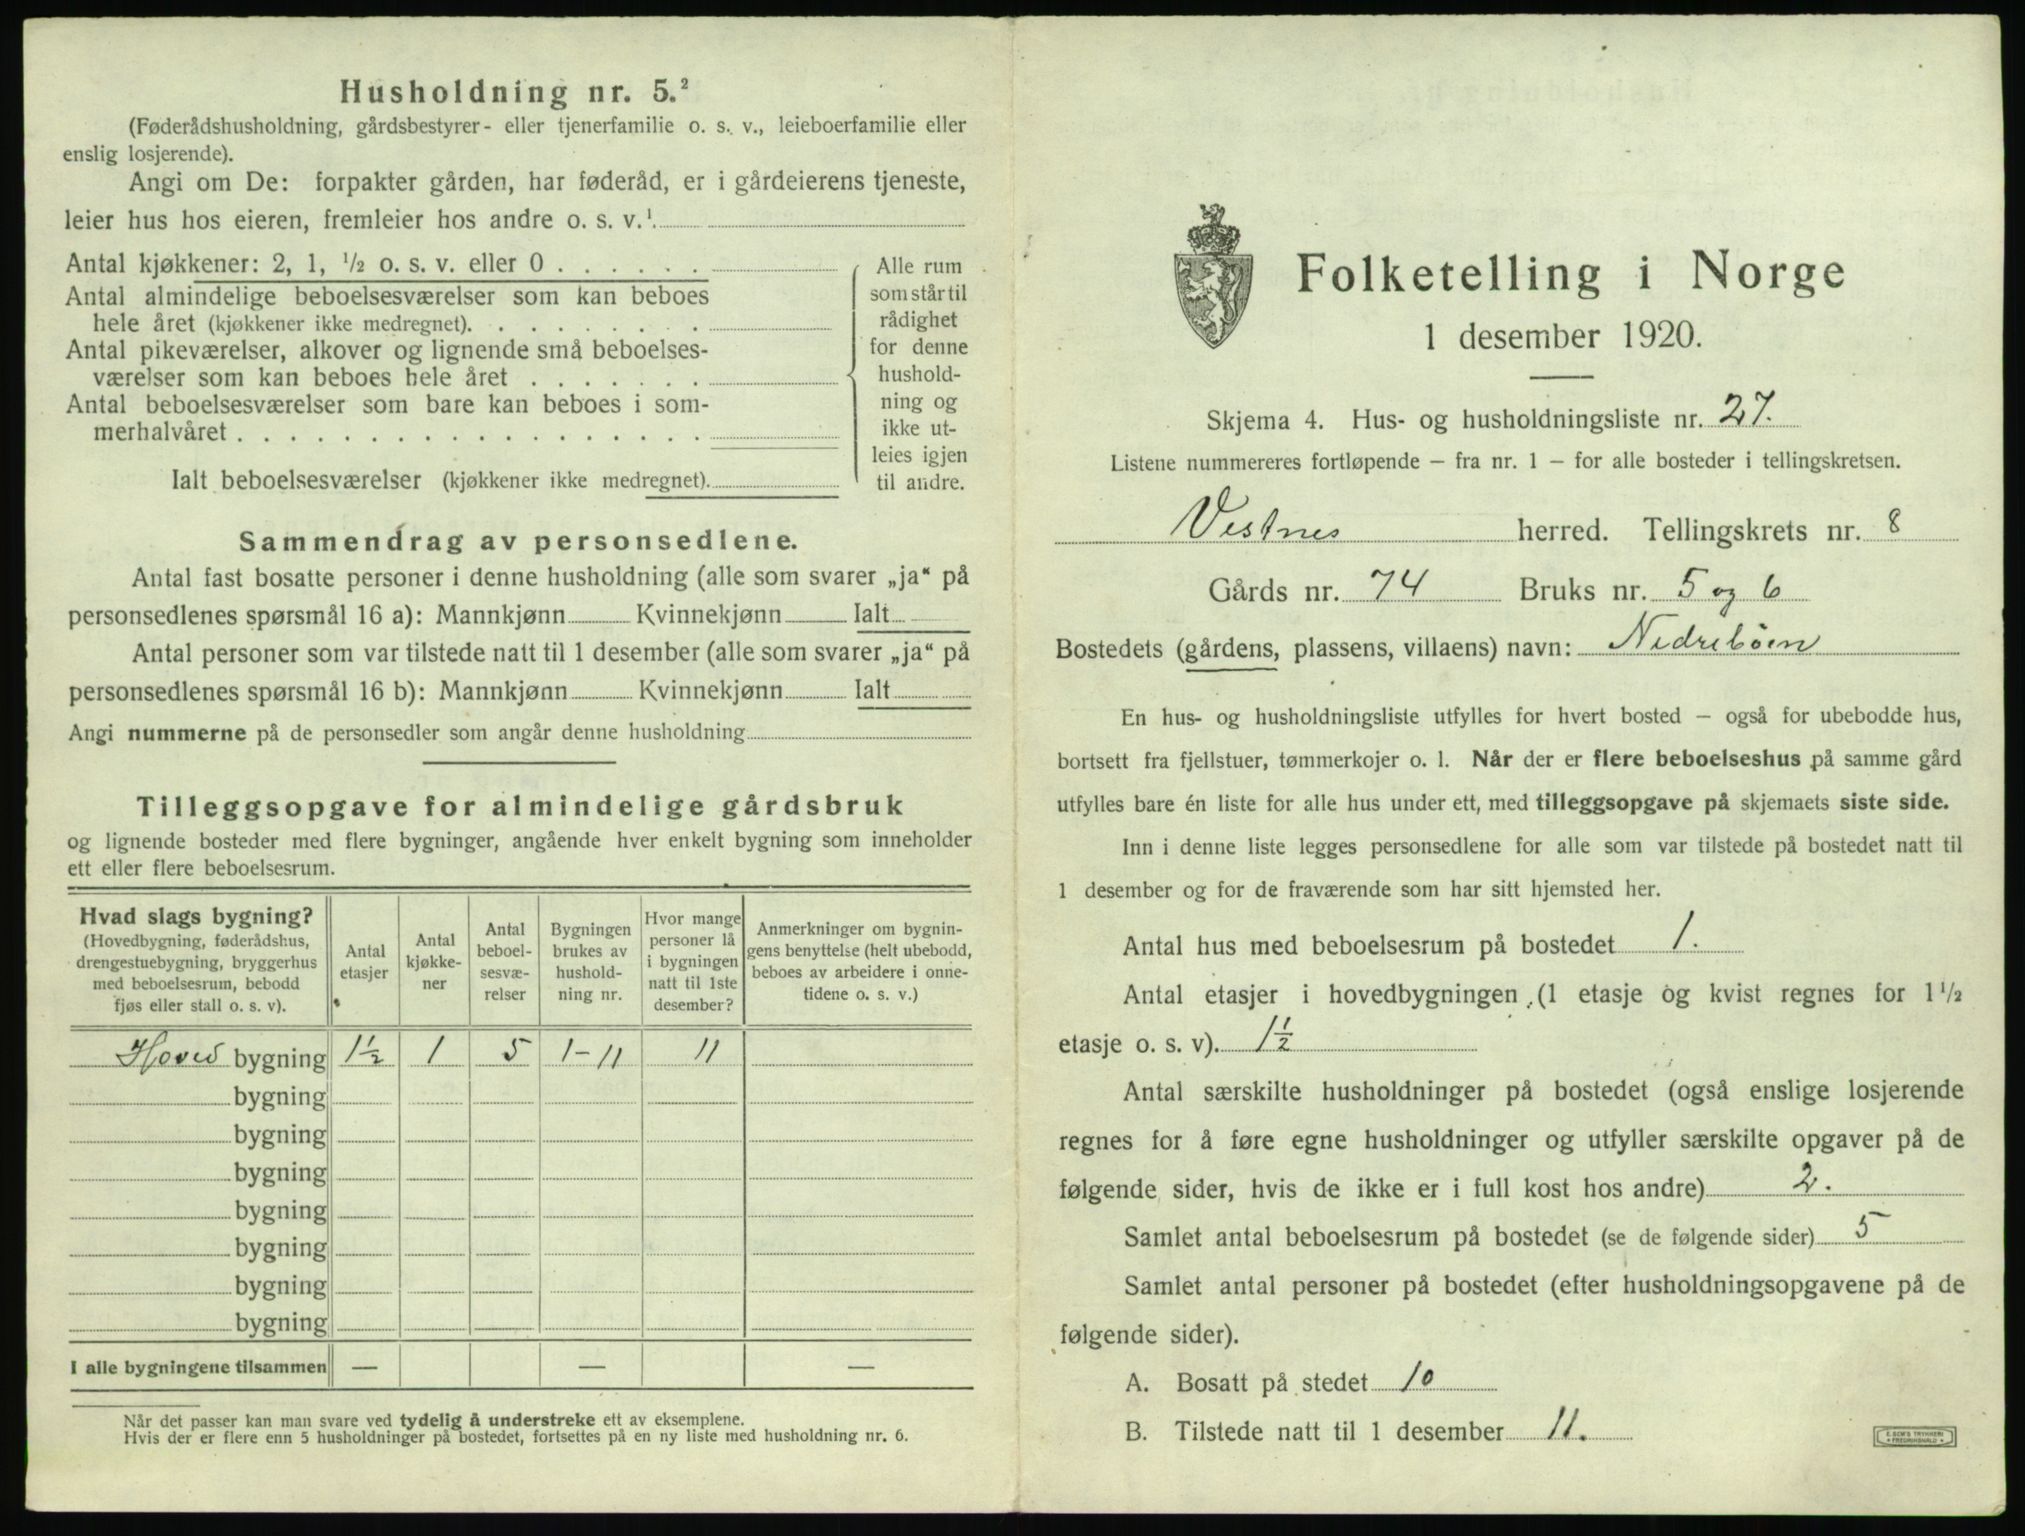 Husholdning nr. 5.²
(Føderådshusholdning, gårdsbestyrer- eller tjenerfamilie o. s. v., leieboerfamilie eller
enslig losjerende).
Angi om De: forpakter gården, har føderåd, er i gårdeierens tjeneste,
leier hus hos eieren, fremleier hos andre o. s. v.¹
Antal kjøkkener: 2, 1, ½ o. s. v. eller 0 . . . . . .
Antal almindelige beboelsesværelser som kan beboes
hele året (kjøkkener ikke medregnet). . . . . . . . .
Antal pikeværelser, alkover og lignende små beboelses-
værelser som kan beboes hele året . . . . . . .
Antal beboelsesværelser som bare kan beboes i som-
merhalvåret . . . . . . . . . . . . . . . . . .
Ialt beboelsesværelser (kjøkkener ikke medregnet).
Alle rum
som står til
rådighet
for denne
hushold-
ning og
ikke ut-
leies igjen
til andre.
Sammendrag av personsedlene.
Antal fast bosatte personer i denne husholdning (alle som svarer „ja“ på
personsedlenes spørsmål 16 a): Mannkjønn Kvinnekjønn Ialt
Antal personer som var tilstede natt til 1 desember (alle som svarer „ja“ på
personsedlenes spørsmål 16 b): Mannkjønn Kvinnekjønn Ialt
Angi nummerne på de personsedler som angår denne husholdning
Tilleggsopgave for almindelige gårdsbruk
og lignende bosteder med flere bygninger, angående hver enkelt bygning som inneholder
ett eller flere beboelsesrum.
Hvad slags bygning?
(Hovedbygning, føderådshus,
drengestuebygning, bryggerhus
med beboelsesrum, bebodd
fjøs eller stall o. s. v).
Antal
etasjer
Antal
kjøkke-
ner
Antal
beboel-
sesvæ-
relser
Bygningen
brukes av
hushold-
ning nr.
Hvor mange
personer lå
i bygningen
natt til 1ste
desember?
Anmerkninger om bygnin-
gens benyttelse (helt ubebodd,
beboes av arbeidere i onne-
tidene o. s. v.)
Hoved bygning 1½ 1 5 1-11 11
bygning
bygning
bygning
bygning
bygning
bygning
bygning
I alle bygningene tilsammen — — —
Når det passer kan man svare ved tydelig å understreke ett av eksemplene.
Hvis der er flere enn 5 husholdninger på bostedet, fortsettes på en ny liste med husholdning nr. 6.
Folketelling i Norge
1 desember 1920.
Skjema 4. Hus- og husholdningsliste nr. 27.
Listene nummereres fortløpende — fra nr. 1 — for alle bosteder i tellingskretsen.
Vestnes herred. Tellingskrets nr. 8
Gårds nr. 74 Bruks nr. 5 og 6
Bostedets (gårdens, plassens, villaens) navn: Nedrebøen
En hus- og husholdningsliste utfylles for hvert bosted — også for ubebodde hus,
bortsett fra fjellstuer, tømmerkojer o. l. Når der er flere beboelseshus på samme gård
utfylles bare én liste for alle hus under ett, med tilleggsopgave på skjemaets siste side.
Inn i denne liste legges personsedlene for alle som var tilstede på bostedet natt til
1 desember og for de fraværende som har sitt hjemsted her.
Antal hus med beboelsesrum på bostedet 1.
Antal etasjer i hovedbygningen (1 etasje og kvist regnes for 1½
etasje o. s. v). 1½
Antal særskilte husholdninger på bostedet (også enslige losjerende
regnes for å føre egne husholdninger og utfyller særskilte opgaver på de
følgende sider, hvis de ikke er i full kost hos andre) 2.
Samlet antal beboelsesrum på bostedet (se de følgende sider) 5
Samlet antal personer på bostedet (efter husholdningsopgavene på de
følgende sider).
A. Bosatt på stedet 10
B. Tilstede natt til 1 desember 11.
E. SEM'S TRYKKERI
FREDRIKSHALD